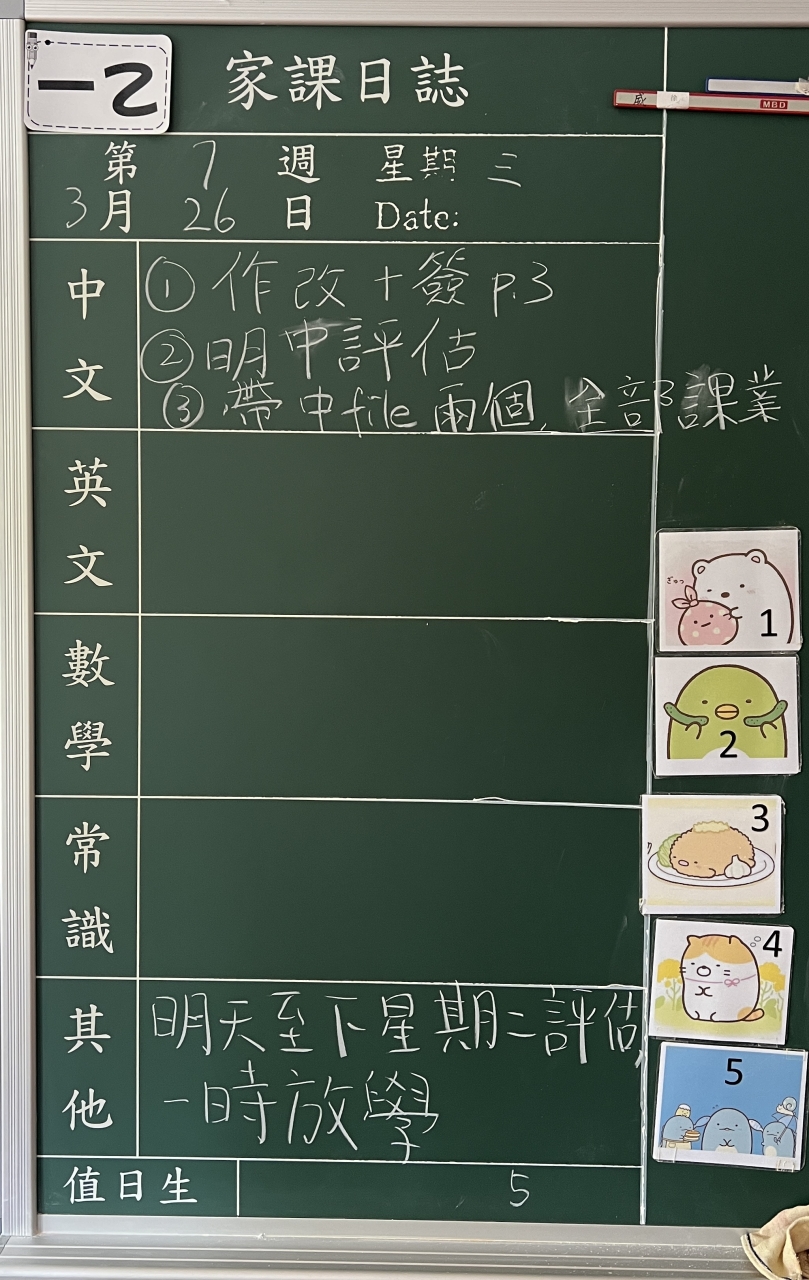 一乙
家課日誌
MBD
第 7 週 星期 三
3 月 26 日 Date:
中文
① 作改+簽 p.3
② 明中評估
③ 帶中file兩個, 全部課業
英文
數學
常識
其他
明天至下星期二評估,
一時放學
值日生 5
ぎゅっ
1
2
3
4
5